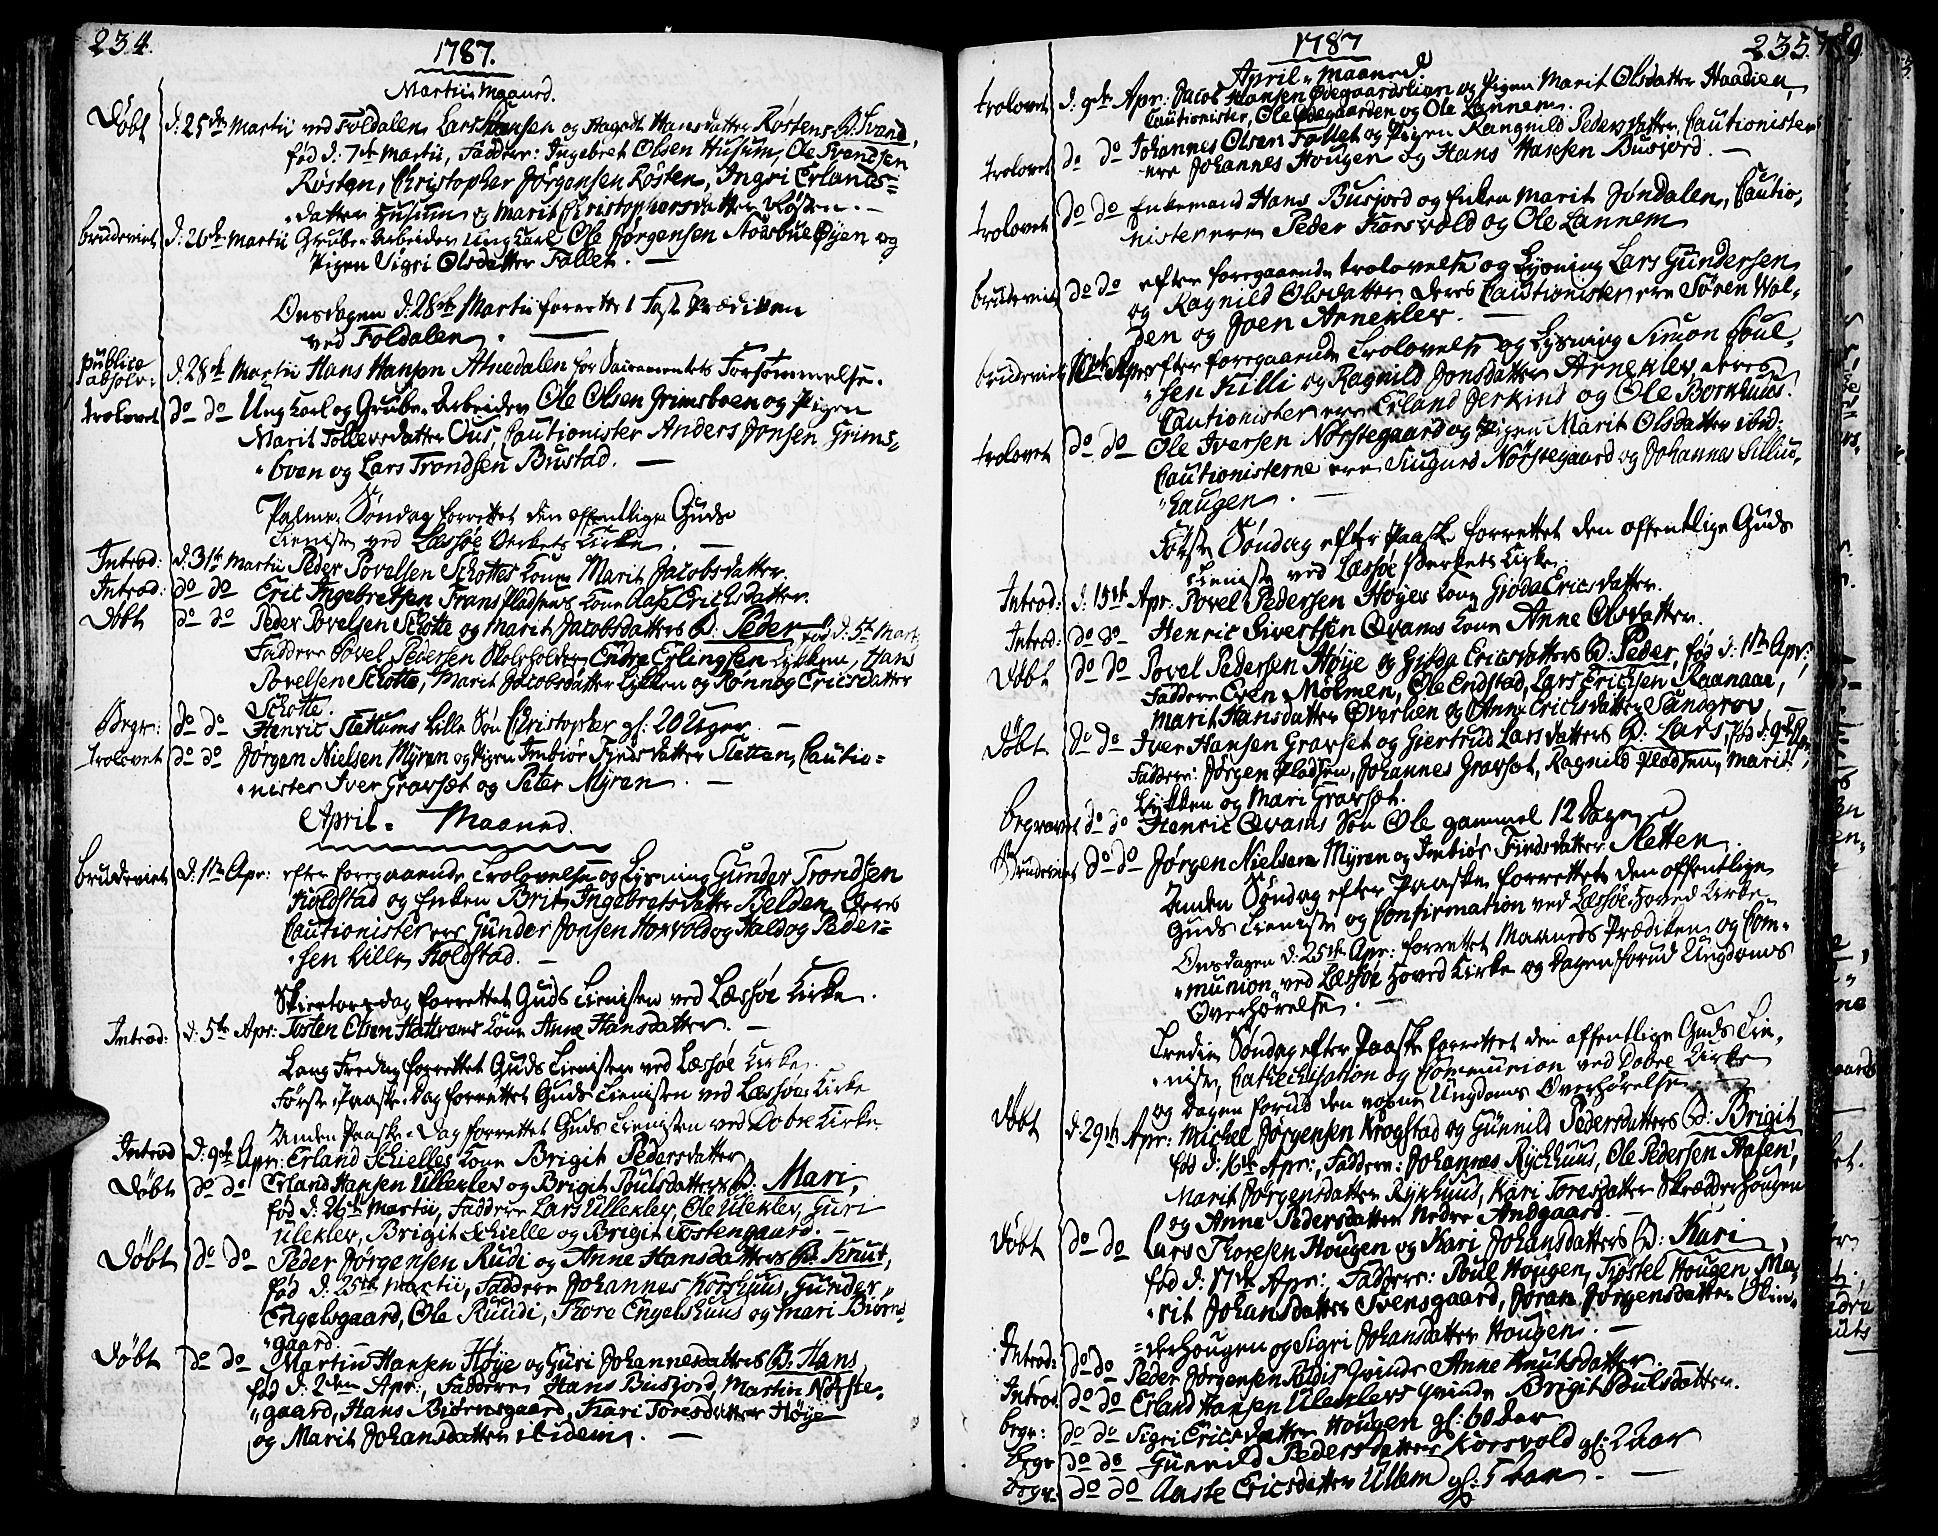 234.
1787.
Martii Maaned.
Døbt d: 25de Martii ved Foldalen Lars Hansen og Hansdatter Røstens B. Svend,
fød d: 7de Martii, Faddere: Ingebret Olsen Husum, Ole Svendsen
Røsten, Christopher Jørgensen Røsten, Ingri Erlands=
datter Husum og Marit Christophersdatter Røsten. —
brudeviet d: 26de Martii Grube-Arbeider Ung Karl Ole Jørgensen Nordbue Øyen og
Pigen Sigri Olsdatter Fallet. —
Onsdagen d: 28de Martii forrettet Fast Prædiken
ved Foldalen.
publice absolv: d: 28de Martii Hans Hansen Atnedalen for Sacramentets Forsømmelse.
trolovet do do Ung Karl og Grube-Arbeider Ole Olsen Grimsboen og Pigen
Marit Tollevsdatter Ous, Cautionister Anders Jonsen Grims=
boen og Lars Trondsen Bustad. —
Palme Søndag forrettet den offentlige Guds
Tieniste ved Læssøe Verkets Kirke. —
Introd: d: 31te Martii Peder Povelsen Schottes Kone Marit Jacobsdatter.
Introd: do do Eric Ingebretsen Frans Pladsens Kone Aase Erichsdatter.
Døbt do do Peder Povelsen Schotte og Marit Jacobsdatters B: Peder fød d: 5te Mart:
Faddere Povel Pedersen Skoleholder, Endre Erlingsen Lykken, Hans
Povelsen Schotte, Marit Jacobsdatter Lykken og Rønnog Ericsdatter
Schotte.
Begr: do do Henric Slettums lille Søn Christopher gl: 20 Uger. —
trolovet do do Jørgen Nielsen Myren og Pigen Imbiør Findsdatter Sletten, Cautio=
nister Iver Gravset og Peter Myren. —
April= Maaned.
brudeviet d: 1te Apr: efter foregaaende Trolovelse og Lysning Gunder Trondsen
Koldstad og Enken Brit Ingebretsdatter Kielden Deres
Cautionister ere Gunder Jonsen Horvold og Haldog Peder=
sen lille Koldstad. —
Skiertorsdag forrettet Guds Tienisten ved Læssøe Kirke.
Introd: d: 5te Apr: Tosten Olsen Hattrems Kone Anne Hansdatter. —
Lang Fredag forrettet Guds Tienisten ved Læssøe Kirke.
Første Paaske-Dag forrettet Guds Tienisten ved Læssøe Kirke
Anden Paaske-Dag forrettet Guds Tienisten ved Dobre Kirke.
Introd d: 9de Apr: Erland Schielles Kone Brigit Pedersdatter.
Døbt do do Erland Hansen Ulleklev og Brigit Poulsdatters B: Mari,
fød d: 26de Martii, Faddere Lars Ulleklev, Ole Ulleklev, Guri
Uleklev, Brigit Schielle og Brigit Tostengaard. —
Døbt do do Peder Jørgensen Rudi og Anne Hansdatters B: Knut,
fød d: 25de Martii, Faddere Johannes Korshuus, Gunder
Engelsgaard, Ole Ruudi, Thore Engelshuus og Mari Biørns=
gaard.
Døbt do do Martin Hansen Høye og Guri Johannesdatters B. Hans
fød d: 2den Apr:, Faddere Hans Busjord, Martin Nørste=
gaard, Hans Biørnsgaard, Kari Toresdatter Høye
og Marit Johansdatter ibidem. —
1787
235.
April= Maaned.
trolovet d: 9de Apr: Jacob Hansen Ødegaardslien og Pigen Marit Olsdatter Haadien,
Cautionister, Ole Ødegaarden og Ole Lannem.
trolovet do do Johannes Olsen Fallet og Pigen Rangnild Pedersdatter, Cautionister
ere Johannes Hougen og Hans Hansen Busjord. —
trolovet do do Enkemand Hans Busjord og Enken Marit Jøndalen, Cautio,
nister ere Peder Korsvold og Ole Lannem
brudeviet do do efter foregaaende trolovelse og Lysning Lars Gundersen
og Ragnild Olsdatter deres Cautionister ere Søren Vol,
den og Joen Arneklev. —
brudeviet 10de Apr: efter foregaaende Trolovelse og Lysning Simon Poul-
sen Killi og Ragnild Jonsdatter Arneklev, deres
Cautionister ere Erland Jerkins og Ole Borkhuus.
trolovet do do Ole Iversen Nørstegaard og Pigen Marit Olsdatter ibid:
Cautionisterne ere Siugurd Nørstegaard og Johannes Sillue,
haugen. —
Første Søndag efter Paaske forrettet den offentlige Guds
Tieniste ved Læssøe Verkets Kirke.
Introd: d: 15de Apr: Povel Pedersen Høyes Kone Giøda Ericsdatter.
Introd: do do Henric Sivertsen Qvams Kone Anne Olsdatter.
Døbt do do Povel Pedersen Høye og Giøda Ericsdatters B: Peder, fød d: 1te Apr:,
Faddere Even Mølmen, Ole Endstad, Lars Erichsen Raanaae,
Marit Hansdatter Øverlien og Anne Erichsdatter Sandgrov.
Døbt do do Iver Hansen Gravset og Giertrud Larsdatters B: Lars, fød d: 9de Apr,
Faddere: Jørgen Pladsen, Johannes Gravset, Ragnild Pladsen, Marit
Lykken og Mari Gravset.
Begravet do do Henric Qvams Søn Ole gammel 12 Dage
Brudeviet do do Jørgen Nielsen Myren og Imbiør Findsdatter Sletten.
Anden Søndag efter Paaske forrettet den offentlige
Guds Tieniste og Confirmation ved Læssøe Hoved Kirke
Onsdagen d: 25de Apr: forrettet Maaneds Prædiken og Com=
munion ved Læssøe Hoved Kirke og Dagen forud Ungdoms
Overhørelse. —
Tredie Søndag efter Paaske forrettet den offentlige Guds Tie,
niste, Cathechisation og Communion ved Dobre Kirke
og Dagen forud den voxne Ungdoms Overhørelse
Døbt d: 29de Apr: Michel Jørgensen Krogstad og Gunnild Pedersdatters B: Brigit
fød d: 16de Apr:, Faddere: Johannes Rychhuus, Ole Pedersen Aasen,
Marit Jørgensdatter Rychhuus, Kari Toresdatter Skrædderhougen
og Anne Pedersdatter Nedre Andgaard. —
Døbt do do Lars Thoresen Hougen og Kari Johansdatters B: Kari
fød d: 17de Apr: Faddere: Poul Hougen, Tostel Hougen, Ma=
rit Johansdatter Svensgaard, Jøran Jørgensdatter Skin=
derhougen og Sigri Johansdatter Hougen. —
Introd: do do Peder Jørgensen Rudis Qvinde Anne Knutsdatter.
Introd do do Erland Hansen Uleklevs Qvinde Brigit Poulsdatter.
begr: do do Sigri Ericsdatter Hougen gl: 60 Aar
begr do do Gunnild Pedersdatter Korsvold gl: 2 Aar
begr: do do Aaste Ericsdatter Ullem gl: 5 Aar. —